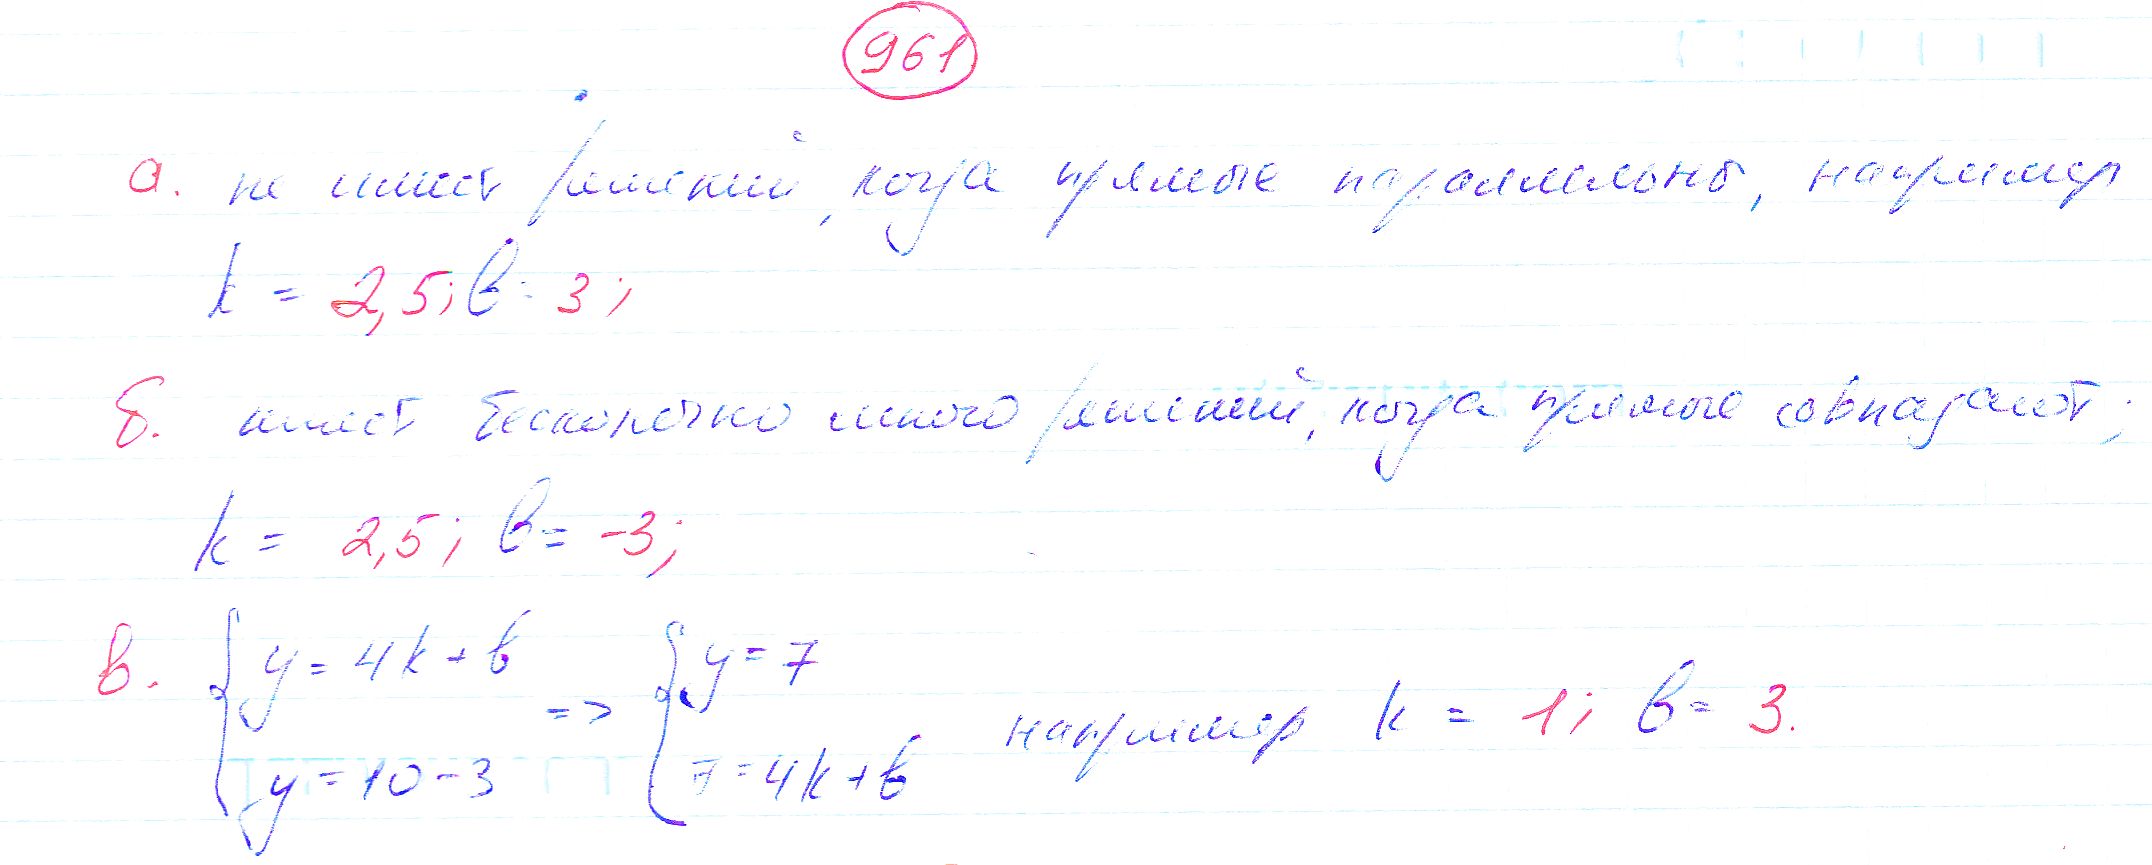 961
а. не имеет решений, когда прямые параллельны, например
k = 2,5; b = 3;
б. имеет бесконечно много решений, когда прямые совпадают;
k = 2,5; b = -3;
в. { y = 4k + b => { y = 7
y = 10 - 3 7 = 4k + b например k = 1; b = 3.